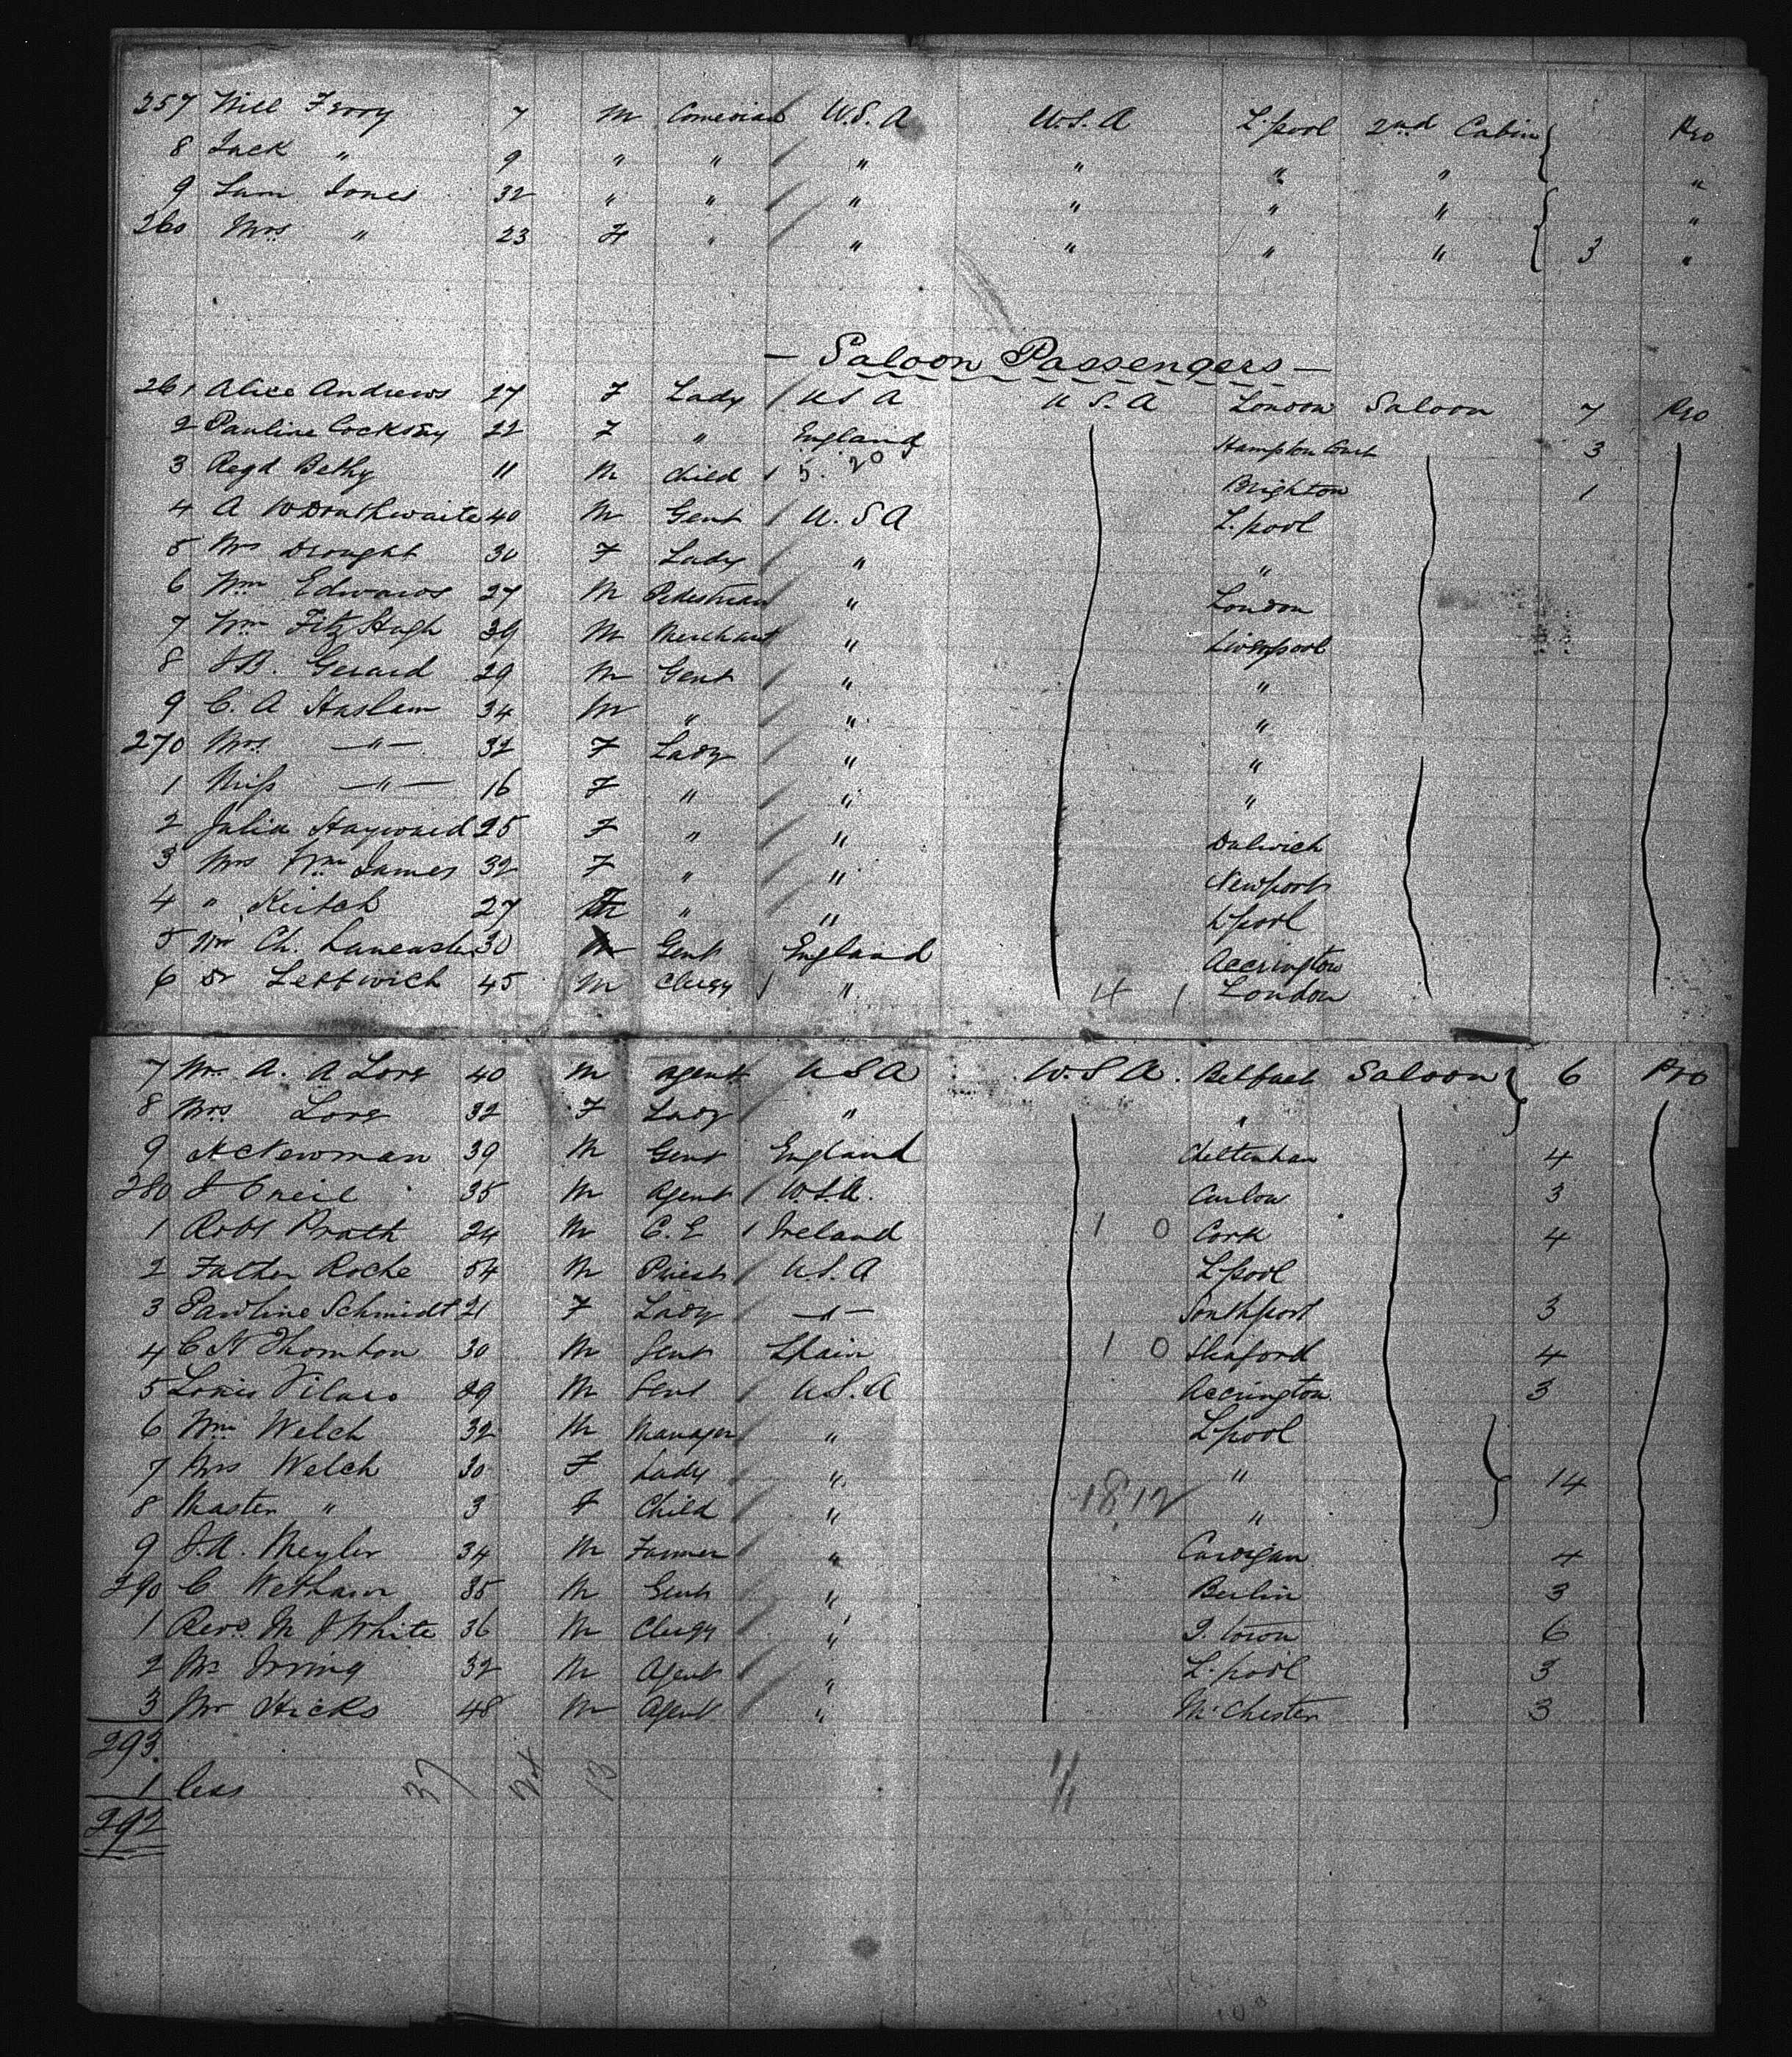 257 Will Ferry 7 M Comedian U.S.A U.S.A L.pool 2nd Cabin Pro
8 Jack " 9 " " " " " " "
9 Sam Jones 32 " " " " " " "
260 Mrs " 23 F " " " " " 3 "
— Saloon Passengers —
261 Alice Andrews 27 F Lady / U S A U.S.A London Saloon 7 Pro
2 Pauline 22 F " England Hampton Court 3
3 Regd Bethy 11 M Child / 5. 20 Brighton 1
4 A Wouthwaite 40 M Gent / U.S A L.pool
5 Mrs Drought 30 F Lady / " "
6 Wm Edwards 27 M Pedestrian " London
7 Wm FitzHugh 39 M Merchant " Liverpool
8 J B. Gerard 29 M Gent / " "
9 C. A Haslam 34 M " / " "
270 Mrs —"— 32 F Lady / " "
1 Miss —"— 16 F " / " "
2 Julia Hayward 25 F " / " Dulwich
3 Mrs Wm James 32 F " / " Newport
4 " Keitch 27 F " / " L'pool
5 Mr Ch. Lancaster 30 M Gent England Accrington
6 Dr Leftwich 45 M Clergy / " 4 1 London
7 Mr A. A Love 40 M Agent U S A U.S A. Belfast Saloon } 6 Pro
8 Mrs Love 32 F Lady / " "
9 H Newman 39 M Gent England Cheltenham 4
280 J O'neil 35 M Agent / U.S.A. Carlow 3
1 Robt Prath 24 M C. E / Ireland 1 0 Cork 4
2 Father Roche 54 M Priest / U.S.A L'pool
3 Pauline Schmidt 21 F Lady / —"— Southport 3
4 C N Thornton 30 M Gent Spain 1 0 Sleaford 4
5 Louis Vilaro 29 M Gent / U.S.A Accrington 3
6 Wm Welch 32 M Manager " L'pool
7 Mrs Welch 30 F Lady / " " } 14
8 Master " 3 F Child / " 18 12 "
9 J.A. Meyler 34 M Farmer / " Cardigan 4
290 C Wethaur 35 M Gent / " Berlin 3
1 Revd. M J White 36 M Clergy / " Q.town 6
2 Mr Irving 32 M Agent / " L.pool 3
3 Mr Hicks 48 M Agent " M'Chester 3
293.
1 less 37 24 13 11
292